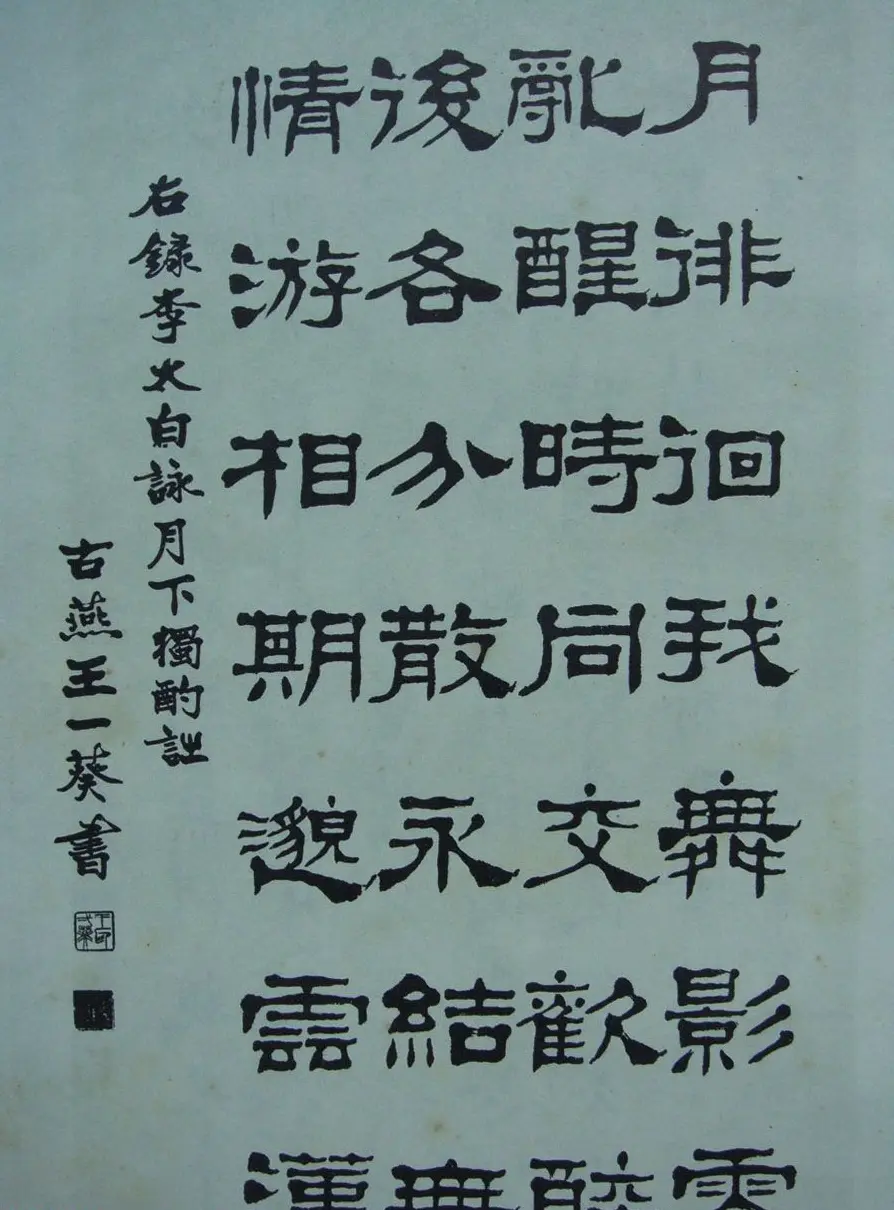 月徘徊我舞影零
亂醒時同交歡醉
後各分散永結無
情游相期邈雲漢
右錄李太白詠月下獨酌
古燕王一葵書